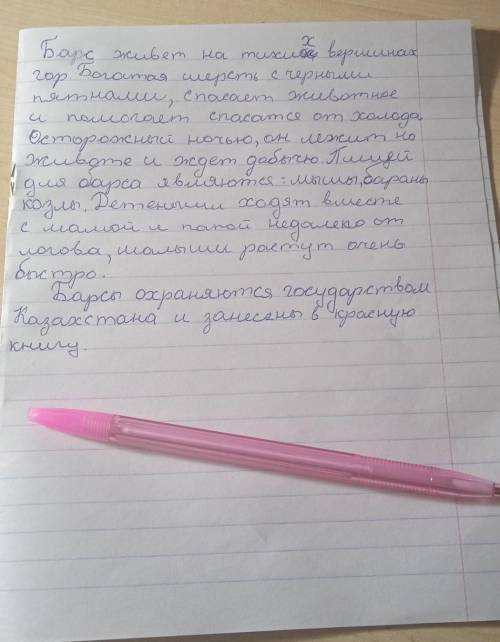 Барс живет на тихих вершинах
гор. Богатая шерсть с черными
пятнами, спасает животное
и помогает спасатся от холода.
Осторожный ночью, он лежит на
животе и ждет добычю. Пищей
для барса являются: мышы, бараны
козлы. Детеныши ходят вместе
с мамой и папой недалеко от
логова, малыши растут очень
быстро.
Барсы охраняются государством
Казахстана и занесены в красную
книгу